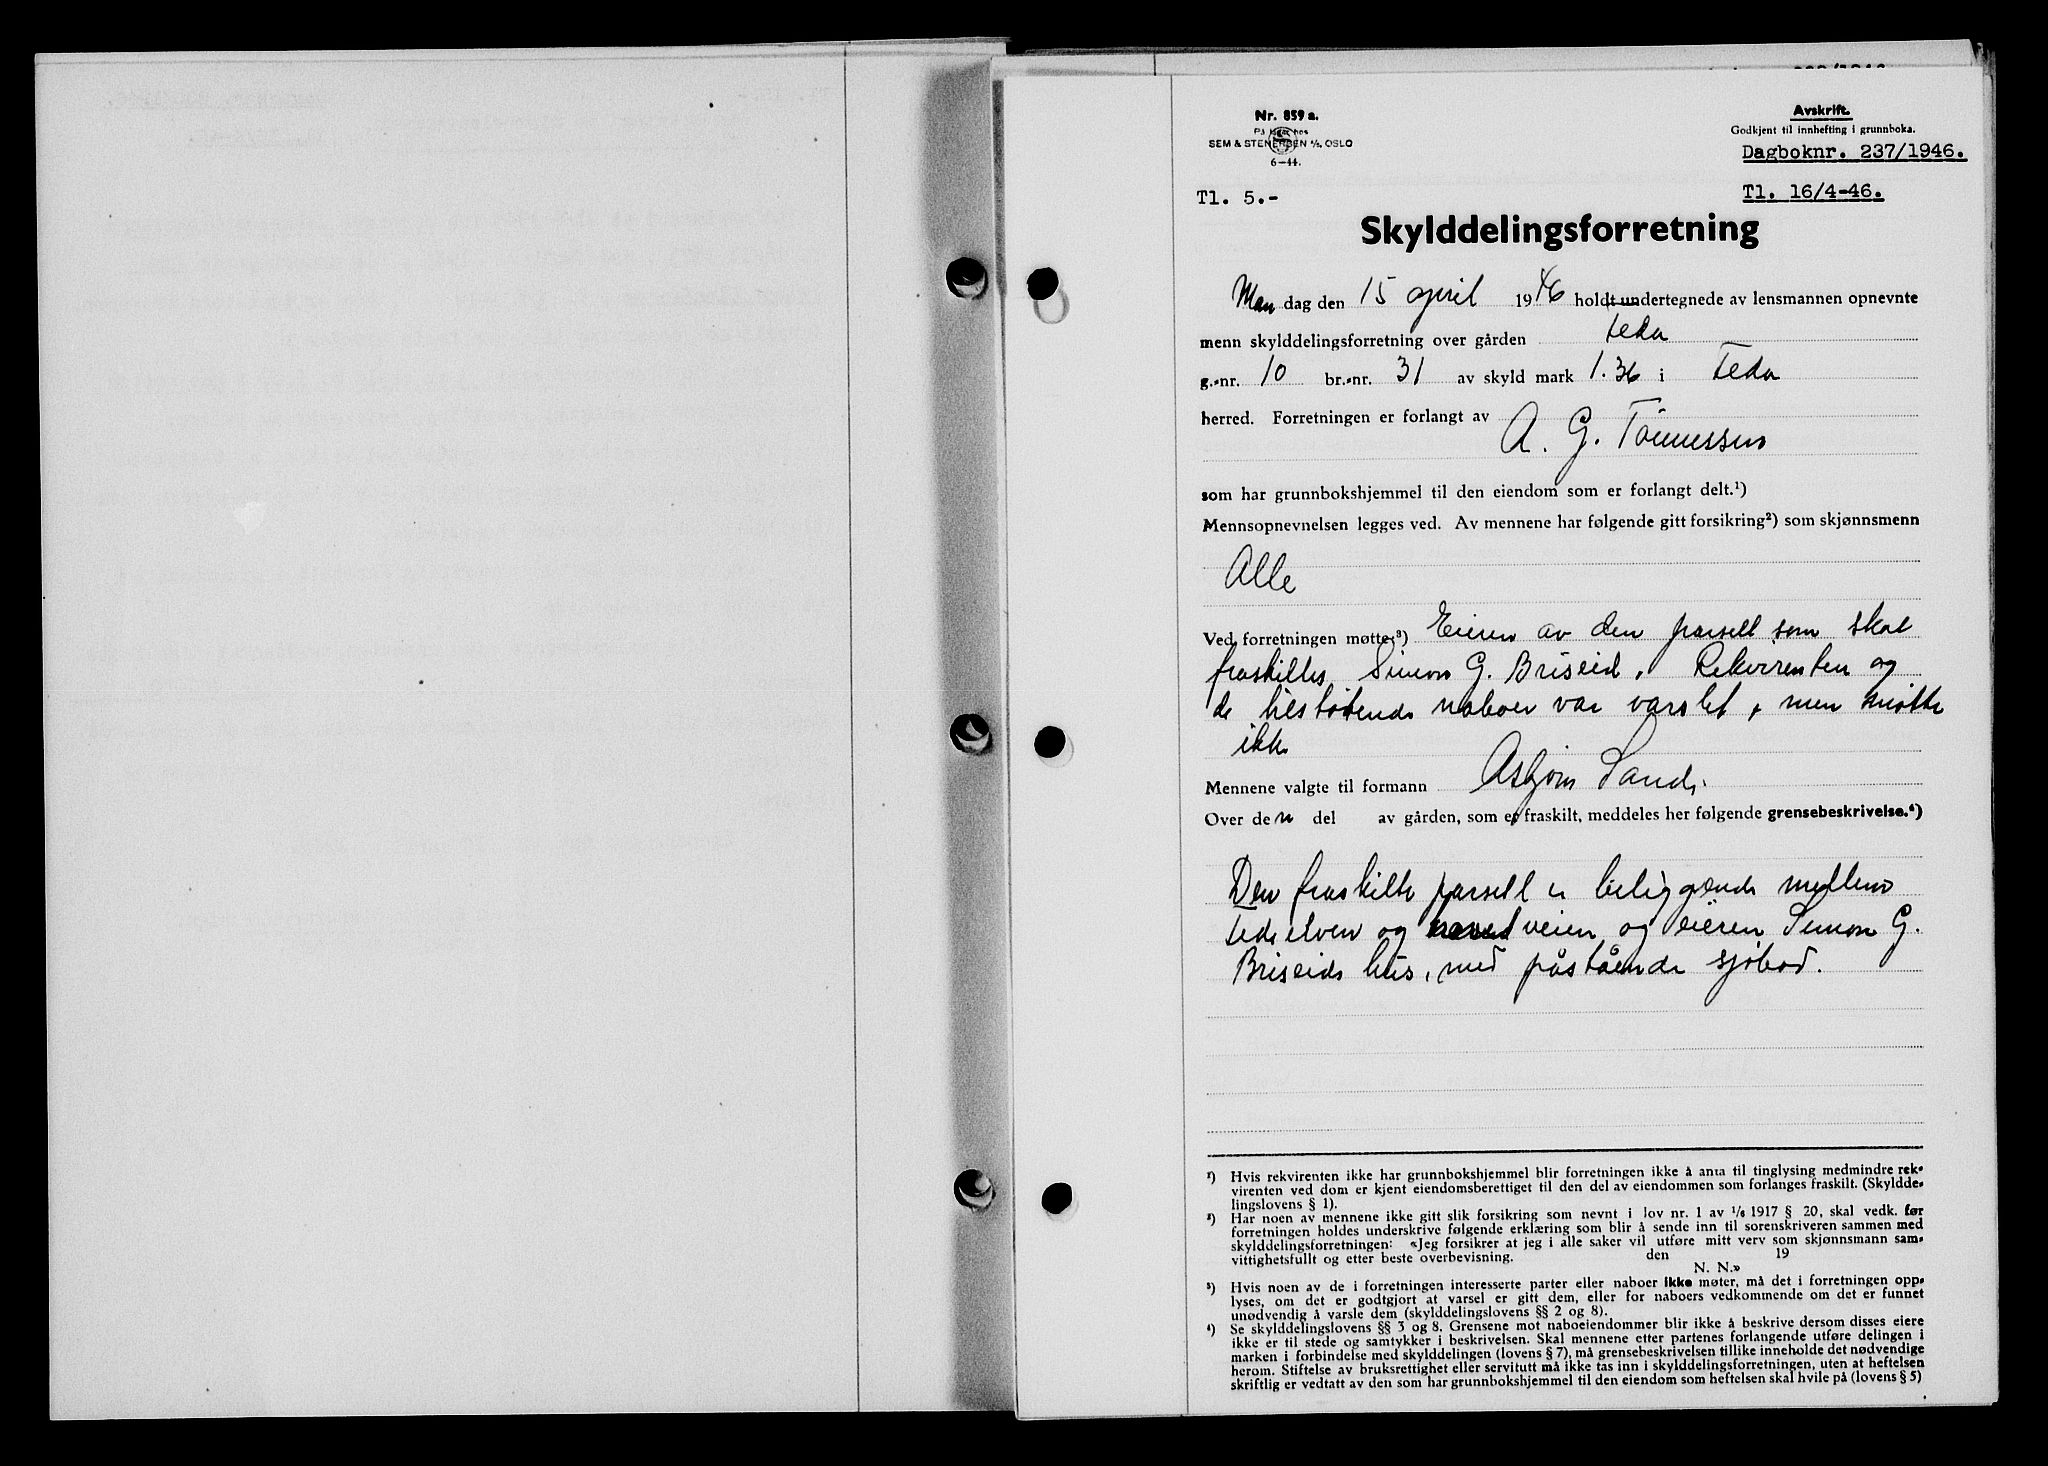 Nr. 859 a.
På lager hos
SEM & STENERSEN A/S, OSLO
6—44.
Avskrift.
Godkjent til innhefting i grunnboka.
Dagboknr. 237/1946.
Tl. 5.-
Tl. 16/4-46.
Skylddelingsforretning
Man dag den 15 april 1946 holdt undertegnede av lensmannen opnevnte
menn skylddelingsforretning over gården Feda
g.-nr. 10 br.-nr. 31 av skyld mark 1.36 i Feda
herred. Forretningen er forlangt av A. G. Tönnessen
som har grunnbokshjemmel til den eiendom som er forlangt delt.¹)
Mennsopnevnelsen legges ved. Av mennene har følgende gitt forsikring²) som skjønnsmenn
Alle
Ved forretningen møtte:³) Eieren av den parsell som skal
fraskilles Simon G. Briseid. Rekvirenten og
de tilstøtende naboer var varslet, men møtte
ikke
Mennene valgte til formann Asbjørn Sande.
Over den del av gården, som er fraskilt, meddeles her følgende grensebeskrivelse.⁴)
Den fraskilte parsell er beliggende mellem
Fedaelven og veien og eieren Simon G.
Briseids hus, med påstående sjøbod.
¹) Hvis rekvirenten ikke har grunnbokshjemmel blir forretningen ikke å anta til tinglysing medmindre rek-
virenten ved dom er kjent eiendomsberettiget til den del av eiendommen som forlanges fraskilt. (Skyldde-
lingslovens § 1).
²) Har noen av mennene ikke gitt slik forsikring som nevnt i lov nr. 1 av 1/6 1917 § 20, skal vedk. før
forretningen holdes underskrive følgende erklæring som blir å sende inn til sorenskriveren sammen med
skylddelingsforretningen: «Jeg forsikrer at jeg i alle saker vil utføre mitt verv som skjønnsmann sam-
vittighetsfullt og etter beste overbevisning. den 19
N. N.»
³) Hvis noen av de i forretningen interesserte parter eller naboer ikke møter, må det i forretningen opp-
lyses, om det er godtgjort at varsel er gitt dem, eller for naboers vedkommende om det er funnet
unødvendig å varsle dem (skylddelingslovens §§ 2 og 8).
⁴) Se skylddelingslovens §§ 3 og 8. Grensene mot naboeiendommer blir ikke å beskrive dersom disses eiere
ikke er til stede og samtykker i beskrivelsen. Skal mennene etter partenes forlangende utføre delingen i
marken i forbindelse med skylddelingen (lovens § 7), må grensebeskrivelsen tillike inneholde det nødvendige
herom. Stiftelse av bruksrettighet eller servitutt må ikke tas inn i skylddelingsforretningen, uten at heftelsen
skriftlig er vedtatt av den som har grunnbokshjemmel til den eiendom som heftelsen skal hvile på (lovens § 5)